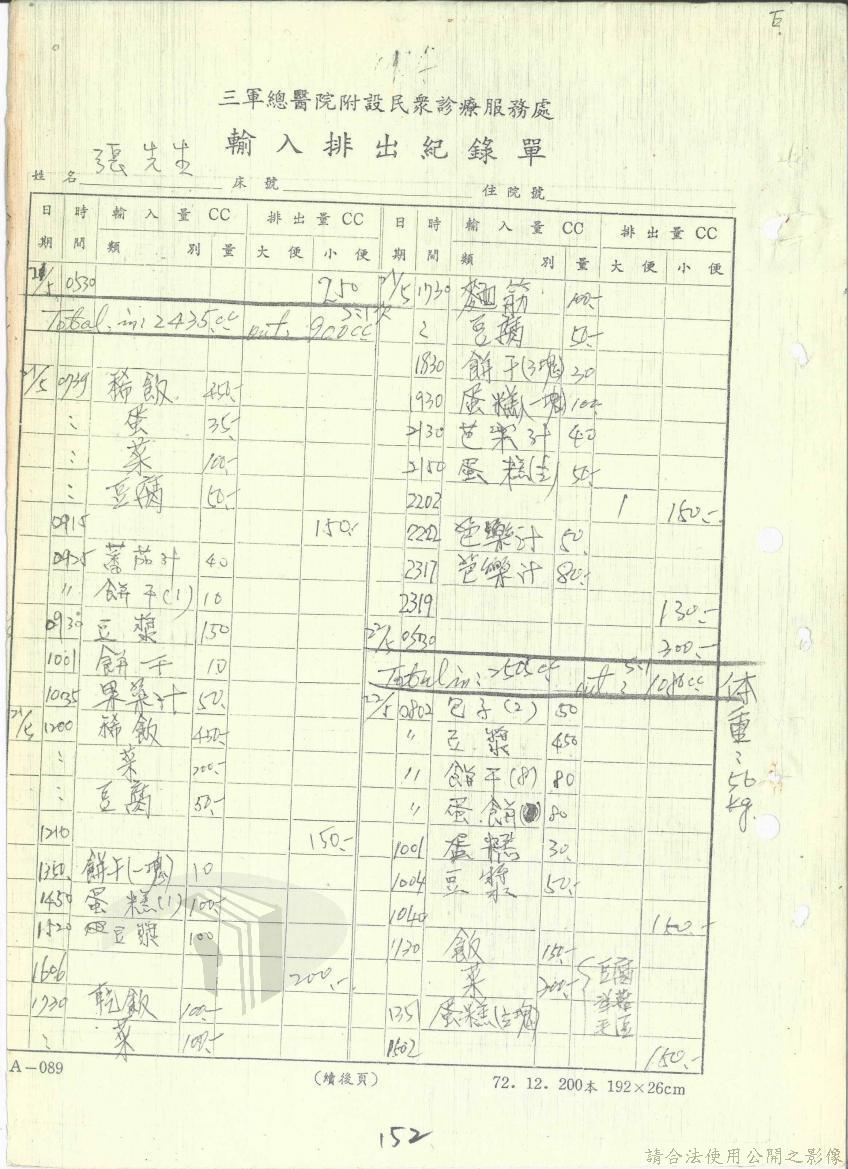 三軍總醫院附設民衆診療服務處
輸入排出紀錄單
姓名 張先生 床號 住院號
日期 時間 輸入量CC 類別 量 排出量CC 大便 小便
21/5 0530 250
Total in: 2435cc out: 900cc
21/5 0739 稀飯 450.-
： 蛋 35.-
： 菜 100.-
： 豆腐 50.-
0915 150.-
0925 蕃茄汁 40
〃 餅干(1) 10
0930 豆漿 150
1001 餅干 10
1035 果菜汁 50.-
21/5 1200 稀飯 450.-
： 菜 200.-
： 豆腐 50.-
1210 150.-
1350 餅干(一塊) 10
1450 蛋糕(1) 100.-
1520 豆漿 100
1606 200.-
1730 乾飯 100.-
： 菜 100.-
日期 時間 輸入量CC 類別 量 排出量CC 大便 小便
21/5 1730 麵筋 100.-
豆腐 50.-
1830 餅干(3塊) 30
1930 蛋糕(一塊) 100.-
2130 芭樂汁 40
2150 蛋糕 50.-
2202 1 150.-
2222 芭樂汁 50.
2317 芭樂汁 80.-
2319 130.-
22/5 0530 300.-
Total in: 2505cc out: 1080cc
22/5 0802 包子(2) 50
〃 豆漿 450
〃 餅干(8) 80
〃 蛋餅 80
1001 蛋糕 30.
1004 豆漿 50.-
1040 150.-
1130 飯 150.-
菜 200.- 豆腐
1351 蛋糕
1502 150.-
体重：56kg.
A-089
(續後頁)
72.12.200本 192×26cm
152
請合法使用公開之影像